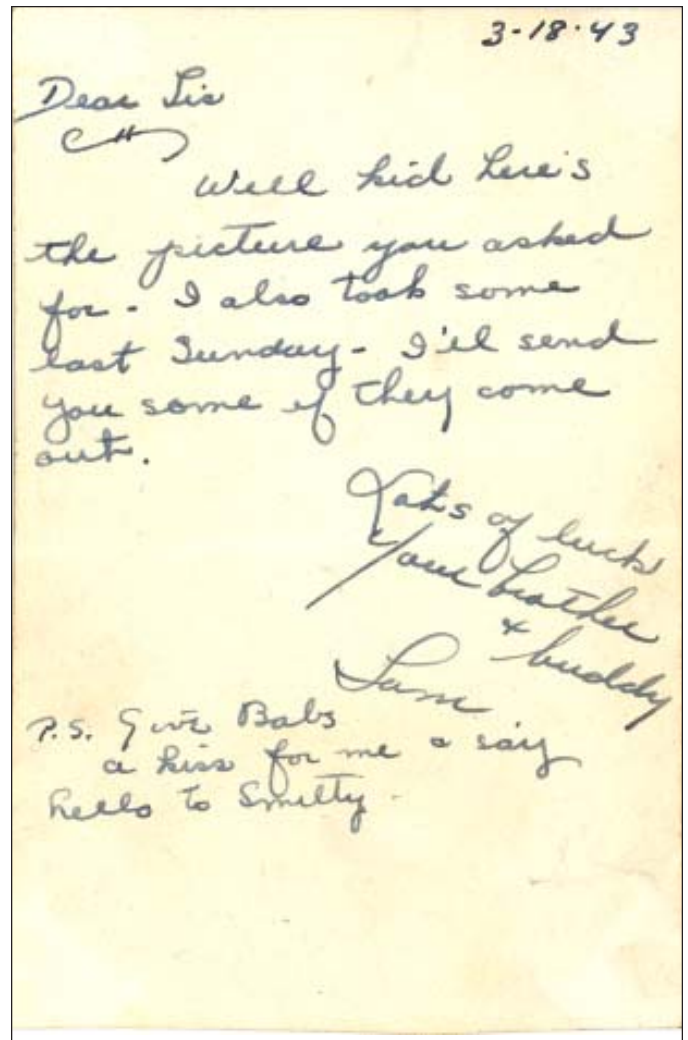 3-18-43
Dear Sis
Well kid here's
the picture you asked
for - I also took some
last Sunday - I'll send
you some if they come
out.
Lots of luck
Your brother
& buddy
Sam
P.S. Give Babs
a kiss for me & say
hello to Smitty.